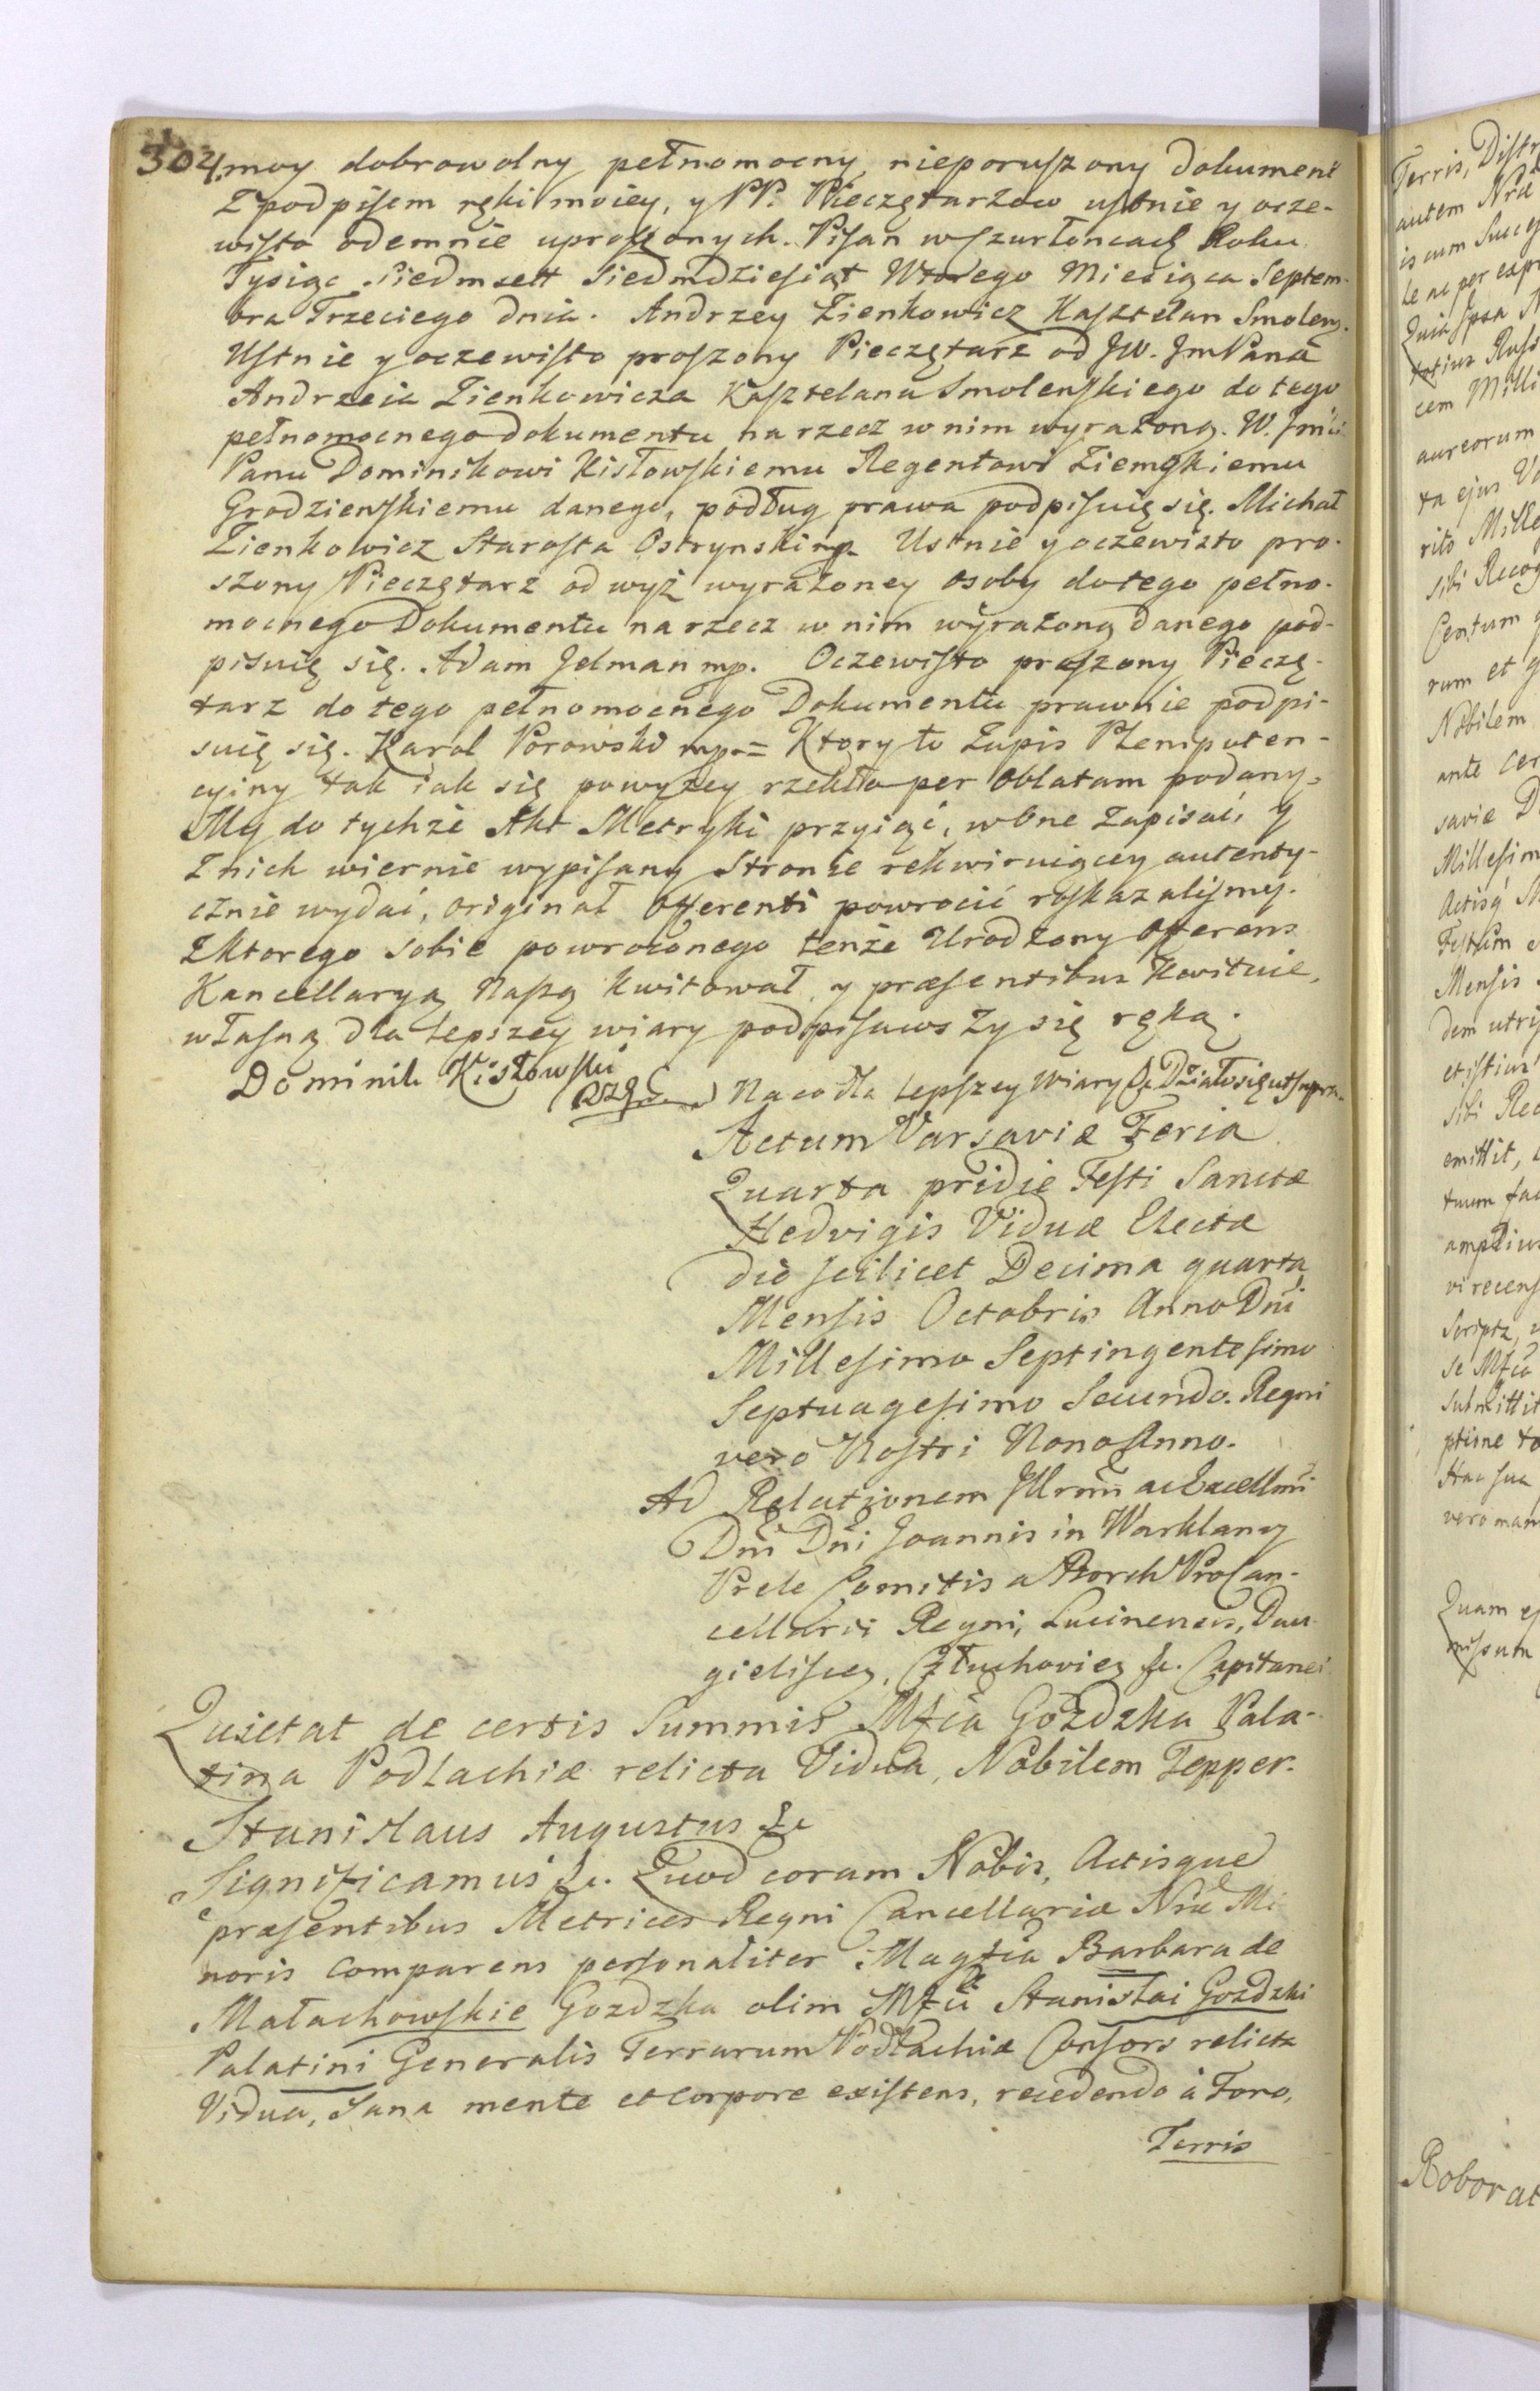 304. moy dobrowolny pełnomocny nieporuszony Dokument
Z podpisem ręki moiey, y PP. Pieczętarzow ustnie y ocze-
wisto odemnie uproszonych. Pisan w Szurłoncach Roku
Tysiąc Siedmsett Siedmdziesiąt Wtorego Miesiąca Septem-
bra Trzeciego dnia. Andrzey Zienkowicz Kasztelan Smolens.
Ustnie y oczewisto proszony Pieczętarz od JW. JmPana
Andrzeia Zienkowicza Kasztelana Smolenskiego do tego
pełnomocnego dokumentu na rzecz w nim wyrażoną. W. Jmci
Panu Dominikowi Kisłowskiemu Regentowi Ziemskiemu
Grodzienskiemu danego, podług prawa podpisuię się. Michał
Zienkowicz Starosta Ostrynski mp. Ustnie y oczewisto pro-
szony Pieczętarz od wyż wyrażoney osoby do tego pełno-
mocnego Dokumentu na rzecz w nim wyrażoną danego pod-
pisuię się. Adam Jelman mp. Oczewisto proszony Pieczę-
tarz do tego pełnomocnego Dokumentu prawnie podpi-
suię się. Karol Porowski mp. = Ktory to Zapis Plenipoten-
cyiny tak iak się powyzey rzekło per Oblatam podany,
My do tychże Akt Metryki przyiąć, w One Zapisać, y
Z nich wiernie wypisany Stronie rekwiruiącey autenty-
cznie wydać, originał Offerenti powrocić roskazalismy.
Z ktorego sobie powroconego tenże Urodzony Offerens
Kancellaryą Naszą kwitował, y præsentibus Kwituie,
własną dla lepszey wiary podpisawszy się ręką.
Dominik Kisłowski
Na co dla lepszey Wiary &c Działo się ut supra.
Actum Varsaviæ Feria
Quarta pridie Festi Sanctæ
Hedvigis Viduæ Electæ
die scilicet Decima quarta
Mensis Octobris Anno Dni
Millesimo Septingentesimo
Septuagesimo Secundo. Regni
vero Nostri Nono Anno.
Ad Relationem Illrmi ac Excellmi
Dni Dni Joannis in Warklany
Prele Comitis a Borch ProCan-
cellarii Regni, Lucinensis, Dau-
gielisceg, Człuchovieg &c. Capitanei
Quietat de certis Summis Mfca Gozdzka Pala-
tina Podlachiæ relicta Vidua, Nobilem Tepper.
Stanislaus Augustus &c
Significamus &c. Quod coram Nobis, Actisque
præsentibus Metrices Regni Cancellariæ Nræ Mi
noris comparens personaliter Magfca Barbara de
Małachowskie Gozdzka olim Mfci Stanisłai Gozdzki
Palatini Generalis Terrarum Podlachiæ Consors relicta
Vidua, sana mente et corpore existens, recedendo à Foro,
Terris
Terris, Distr
autem Nra
is cum Succes
Quia Ipsa
cem Milli
aureorum
ta ejus
rito Mille
sibi Recog
Centum
rum et
Nobilem
ante
savie D
Millesim
Mensis
dem utri
et istius
sibi Rec
emittit,
tuum
amplius
vi recens
Submittit
ptione
vero man
Quam
Roborat